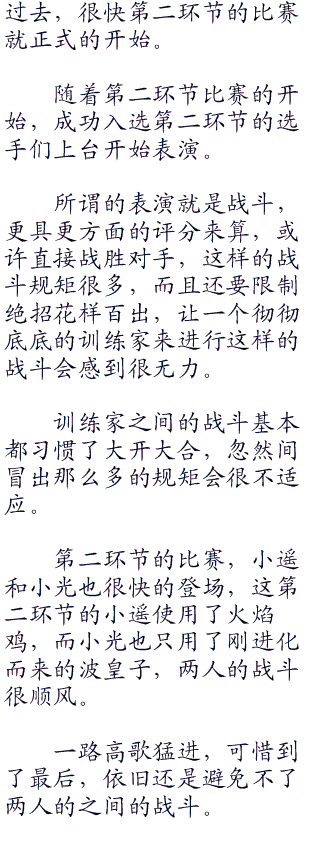 过去，很快第二环节的比赛
就正式的开始。
随着第二环节比赛的开
始，成功入选第二环节的选
手们上台开始表演。
所谓的表演就是战斗，
更具更方面的评分来算，或
许直接战胜对手，这样的战
斗规矩很多，而且还要限制
绝招花样百出，让一个彻彻
底底的训练家来进行这样的
战斗会感到很无力。
训练家之间的战斗基本
都习惯了大开大合，忽然间
冒出那么多的规矩会很不适
应。
第二环节的比赛，小遥
和小光也很快的登场，这第
二环节的小遥使用了火焰
鸡，而小光也只用了刚进化
而来的波皇子，两人的战斗
很顺风。
一路高歌猛进，可惜到
了最后，依旧还是避免不了
两人的之间的战斗。